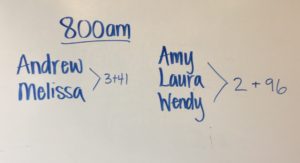 800am
Andrew
Melissa
3+41
Amy
Laura
Wendy
2 + 96